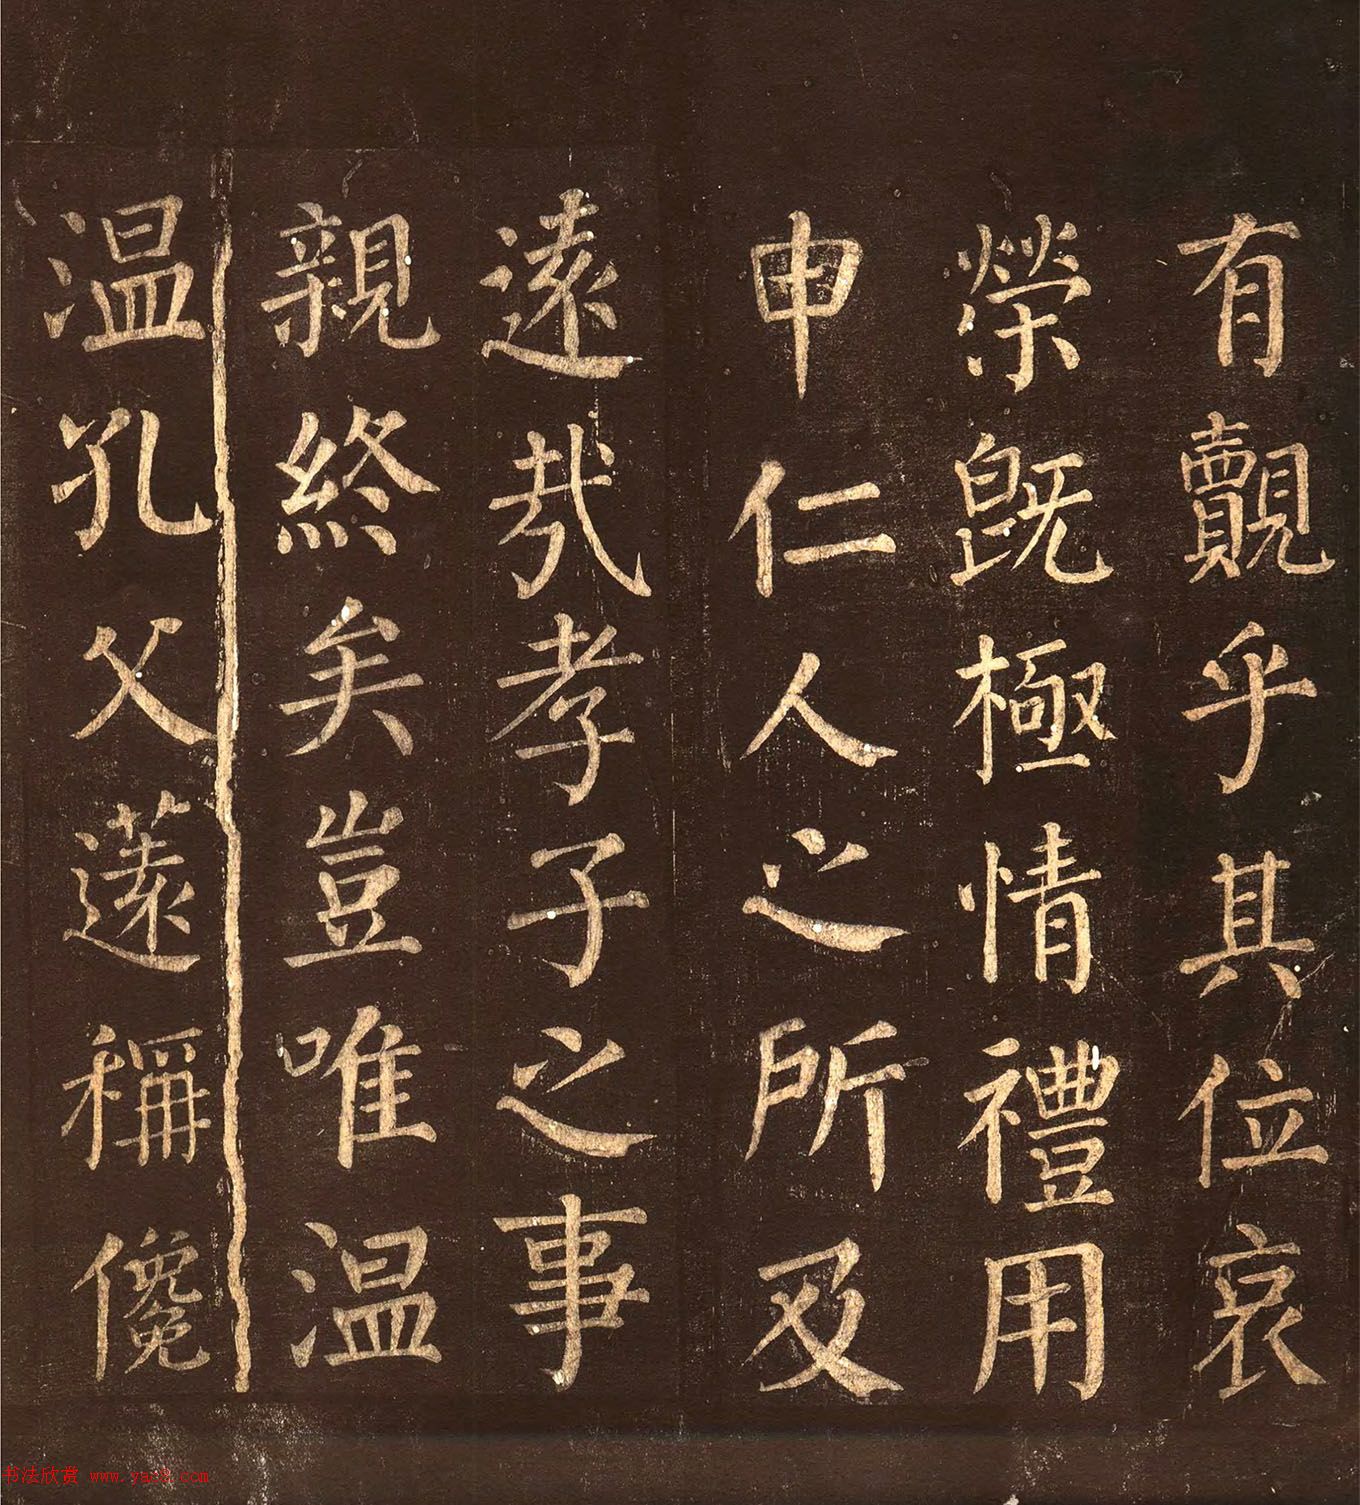 有觀乎其位哀
榮既極情禮用
申仁人之所及
遠哉孝子之事
親終矣豈唯溫
溫孔父蘧稱儳
书法欣赏 www.yac8.com